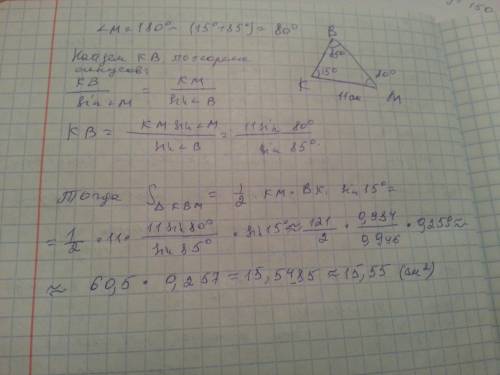 ∠M = 180° - (15° + 85°) = 80°
Найдем KB по теореме
синусов:
KB / sin∠M = KM / sin∠B
KB = KM sin∠M / sin∠B = 11 sin 80° / sin 85°.
B
85°
15°
80°
K
11 см
M
Тогда S△KBM = 1/2 · KM · BK · sin 15° =
= 1/2 · 11 · 11 sin 80° / sin 85° · sin 15° ≈ 121/2 · 0,984/0,996 · 0,259 ≈
≈ 60,5 · 0,257 = 15,5485 ≈ 15,55 (см²)